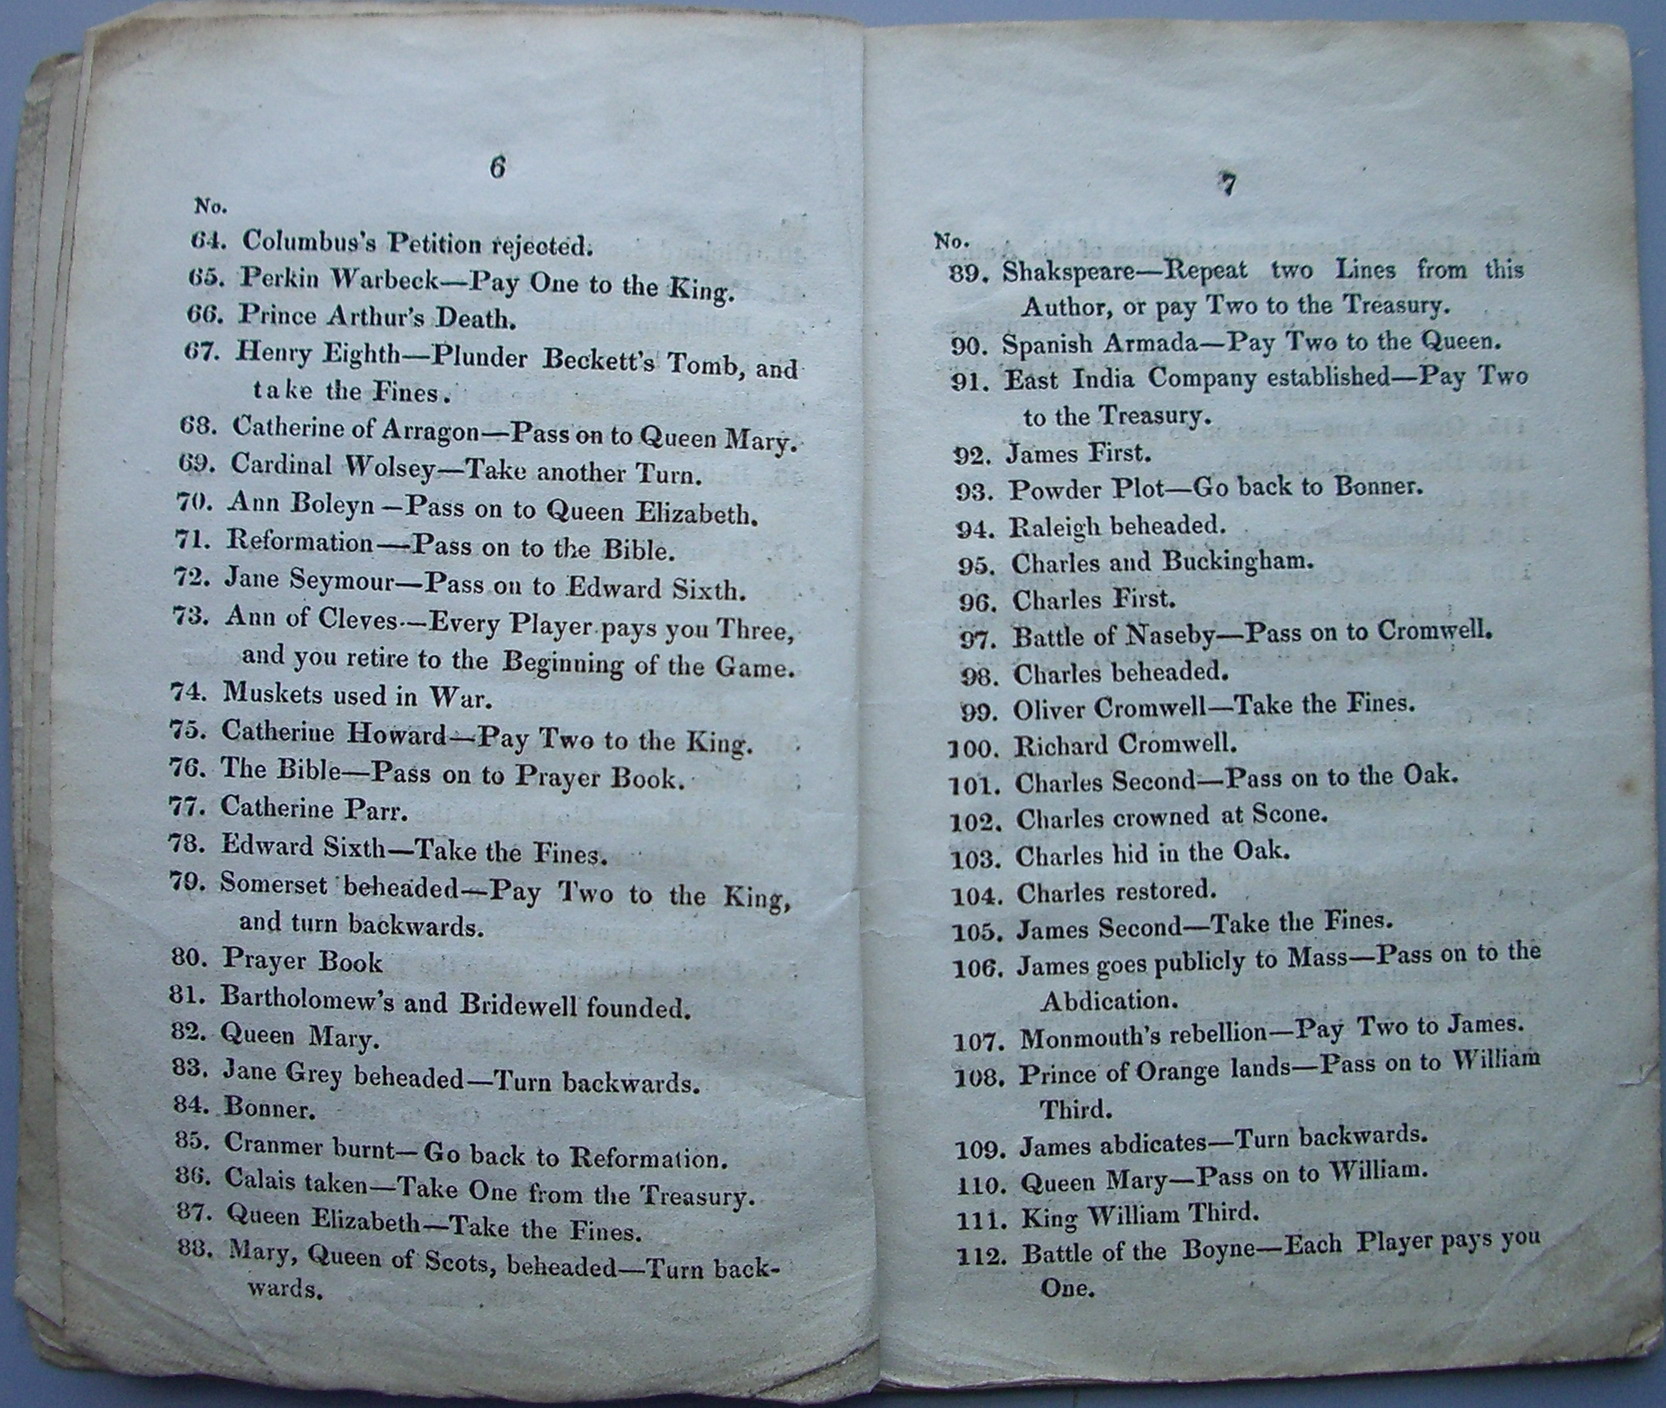 6
No.
64. Columbus's Petition rejected.
65. Perkin Warbeck—Pay One to the King.
66. Prince Arthur's Death.
67. Henry Eighth—Plunder Beckett's Tomb, and
take the Fines.
68. Catherine of Arragon—Pass on to Queen Mary.
69. Cardinal Wolsey—Take another Turn.
70. Ann Boleyn—Pass on to Queen Elizabeth.
71. Reformation—Pass on to the Bible.
72. Jane Seymour—Pass on to Edward Sixth.
73. Ann of Cleves—Every Player pays you Three,
and you retire to the Beginning of the Game.
74. Muskets used in War.
75. Catherine Howard—Pay Two to the King.
76. The Bible—Pass on to Prayer Book.
77. Catherine Parr.
78. Edward Sixth—Take the Fines.
79. Somerset beheaded—Pay Two to the King,
and turn backwards.
80. Prayer Book
81. Bartholomew's and Bridewell founded.
82. Queen Mary.
83. Jane Grey beheaded—Turn backwards.
84. Bonner.
85. Cranmer burnt—Go back to Reformation.
86. Calais taken—Take One from the Treasury.
87. Queen Elizabeth—Take the Fines.
88. Mary, Queen of Scots, beheaded—Turn back-
wards.
7
No.
89. Shakspeare—Repeat two Lines from this
Author, or pay Two to the Treasury.
90. Spanish Armada—Pay Two to the Queen.
91. East India Company established—Pay Two
to the Treasury.
92. James First.
93. Powder Plot—Go back to Bonner.
94. Raleigh beheaded.
95. Charles and Buckingham.
96. Charles First.
97. Battle of Naseby—Pass on to Cromwell.
98. Charles beheaded.
99. Oliver Cromwell—Take the Fines.
100. Richard Cromwell.
101. Charles Second—Pass on to the Oak.
102. Charles crowned at Scone.
103. Charles hid in the Oak.
104. Charles restored.
105. James Second—Take the Fines.
106. James goes publicly to Mass—Pass on to the
Abdication.
107. Monmouth's rebellion—Pay Two to James.
108. Prince of Orange lands—Pass on to William
Third.
109. James abdicates—Turn backwards.
110. Queen Mary—Pass on to William.
111. King William Third.
112. Battle of the Boyne—Each Player pays you
One.